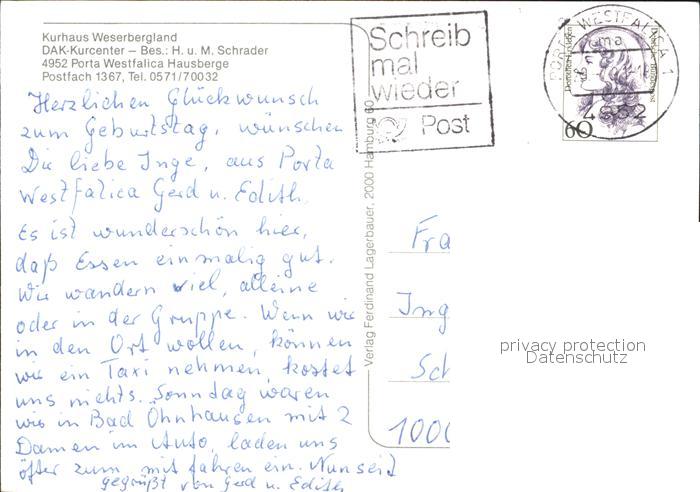 Kurhaus Weserbergland
DAK-Kurcenter – Bes.: H. u. M. Schrader
4952 Porta Westfalica Hausberge
Postfach 1367, Tel. 0571/70032
Herzlichen Glückwunsch
zum Geburtstag, wünschen
Dir liebe Inge, aus Porta
Westfalica Gerd u. Edith.
Es ist wunderschön hier,
daß Essen einmalig gut.
Wir wandern viel, alleine
oder in der Gruppe. Wenn wir
in den Ort wollen, können
wir ein Taxi nehmen, kostet
uns nichts. Sonntag waren
wir in Bad Öhnhausen mit 2
Damen im Auto, laden uns
öfter zum mit fahren ein. Nun seid
gegrüßt von Gerd u. Edith
Verlag Ferdinand Lagerbauer, 2000 Hamburg 60
Schreib
mal
wieder
Post
PORTA WESTFALICA 1
4952
60
Fra
Ing
Sch
1000
privacy protection
Datenschutz